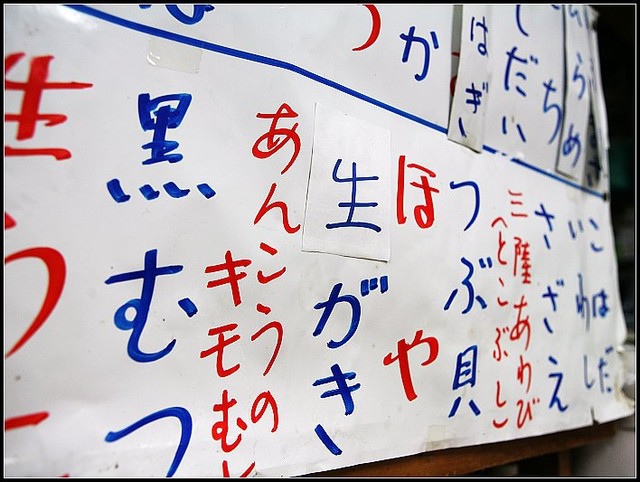 らめ
ち
だい
はぎ
か
こはだ
いわし
さざえ
三陸あわび
(とこぶし
つぶ貝
ほや
生がき
あんこうの
キモむし
黒むつ
生う